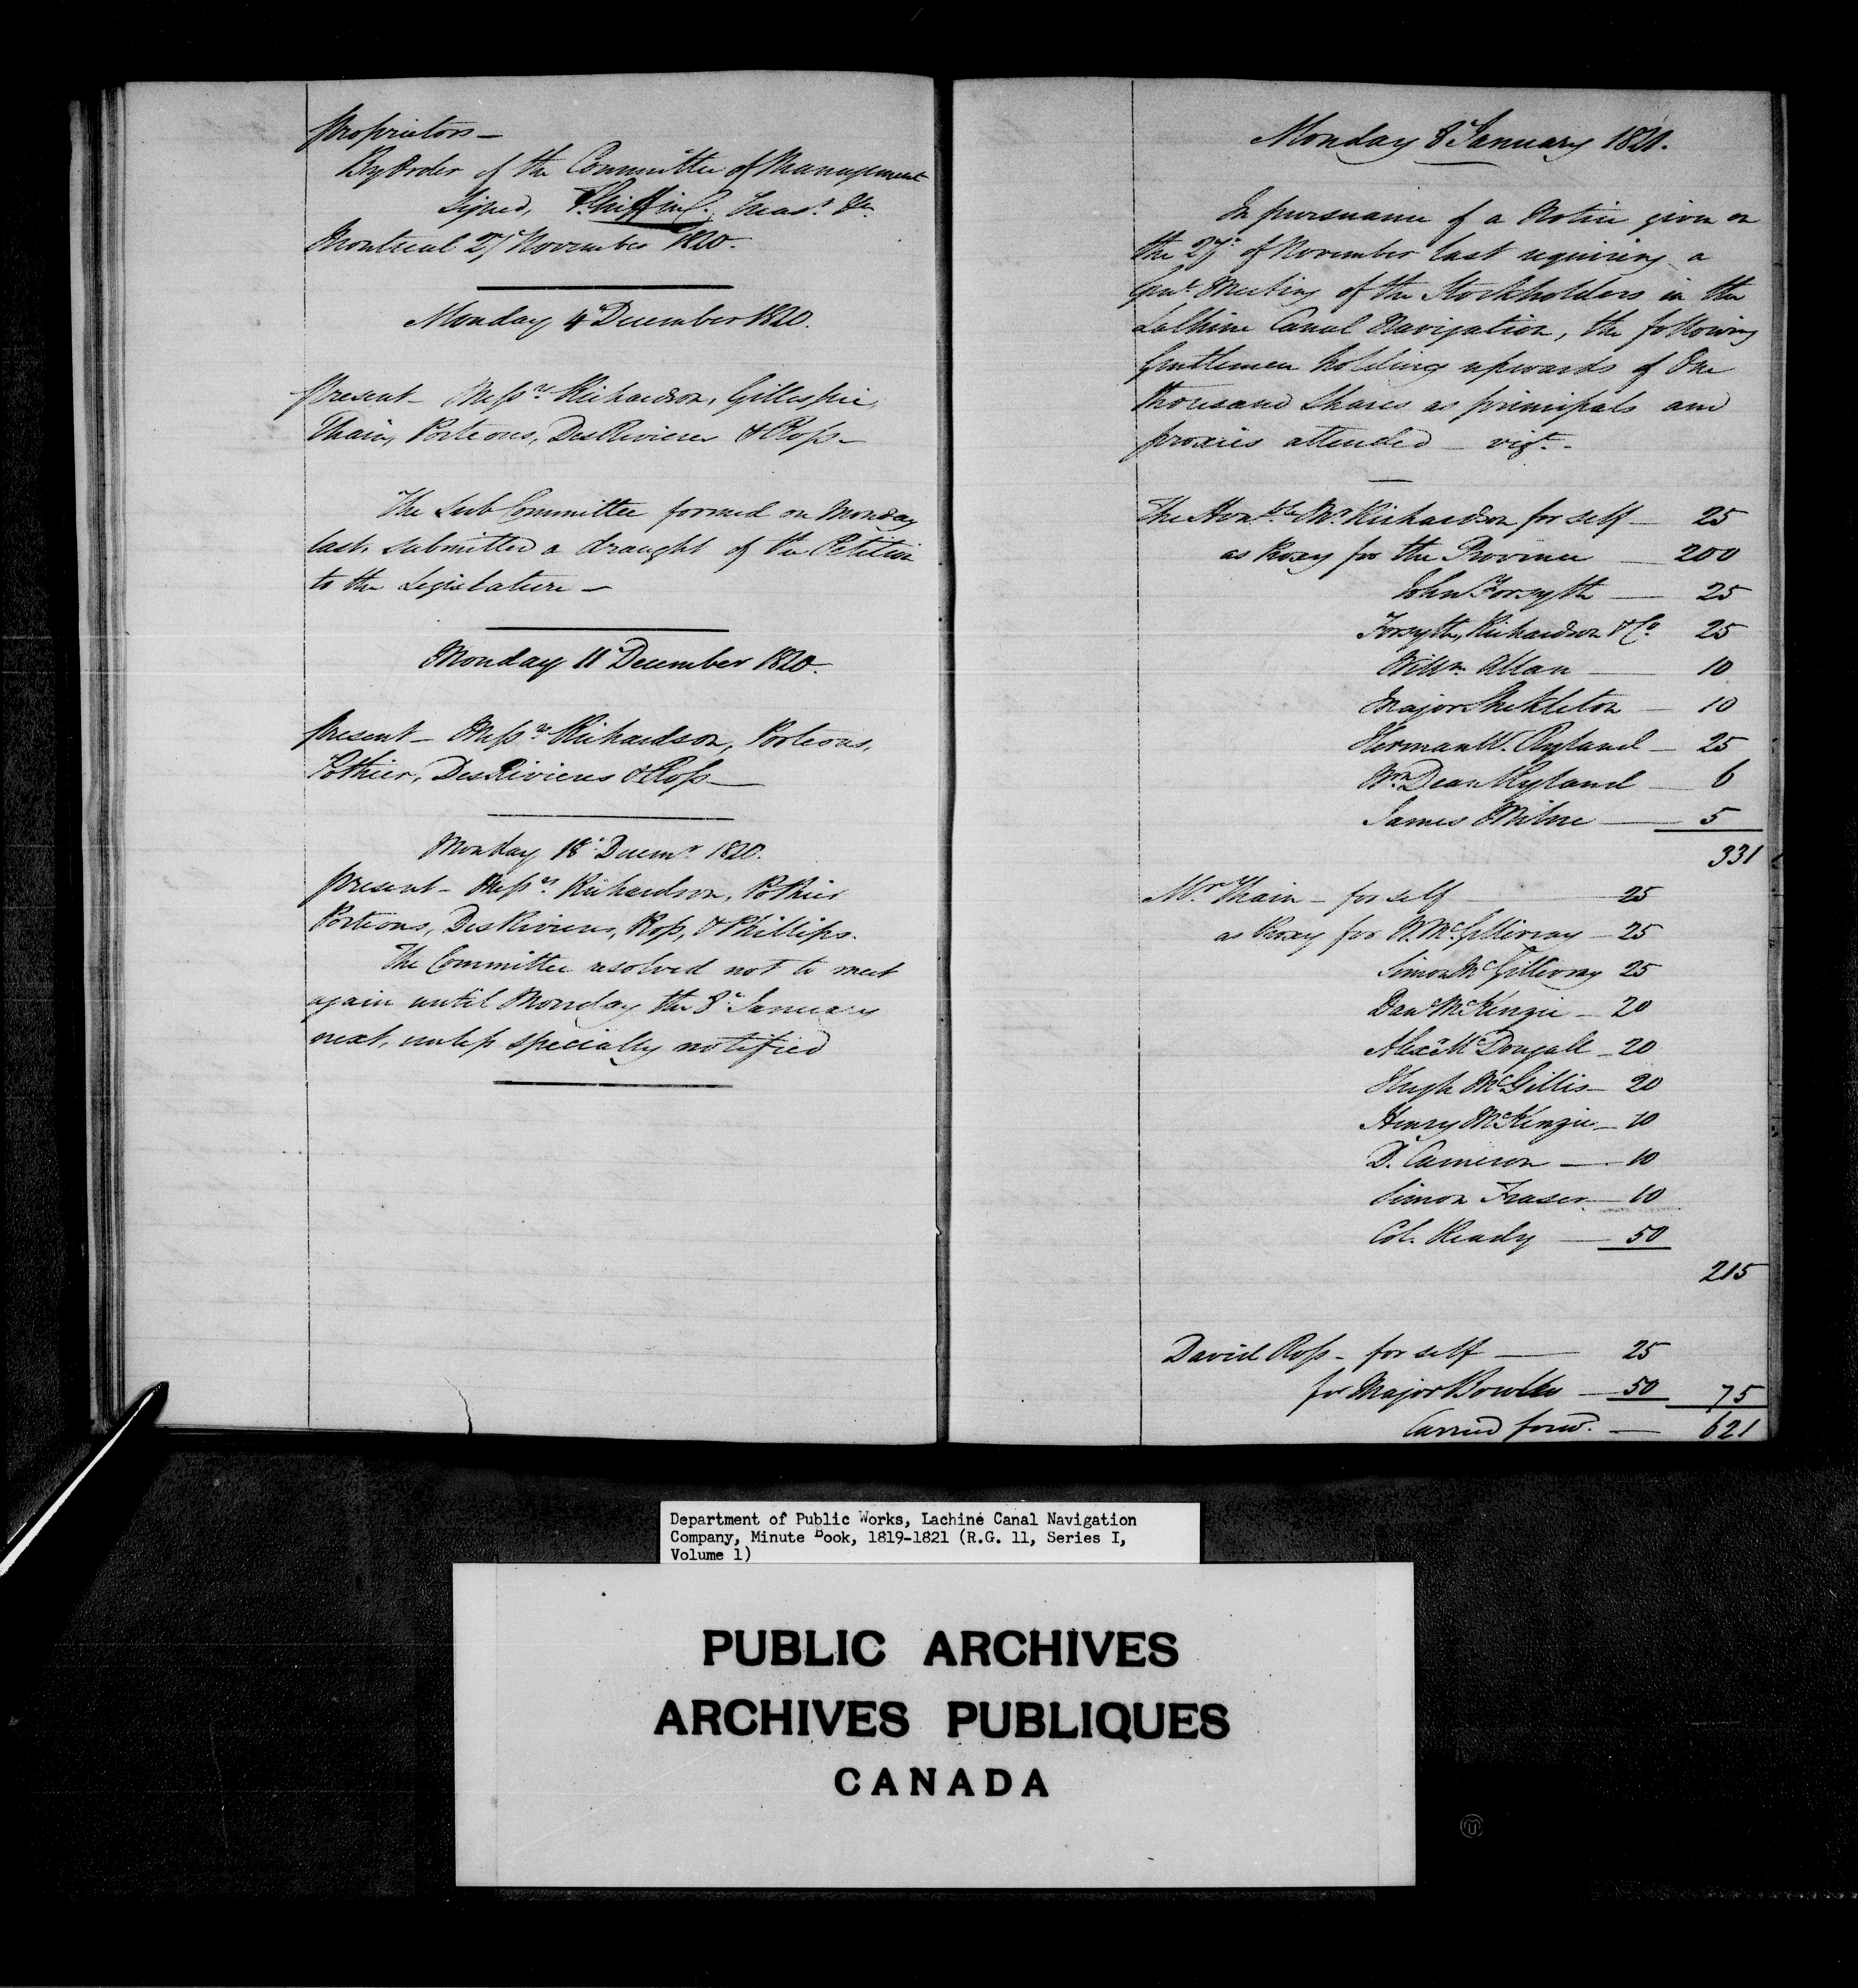 proprietors —
By Order of the Committee of Management
Signed, Treasr. &c.
Montreal 27 November 1820.
Monday 4 December 1820.
Present — Messrs Richardson, Gillespie,
Thain, Porteous, DesRivieres & Ross —
The Sub Committee formed on Monday
last, submitted a draught of the Petition
to the Legislature —
Monday 11 December 1820.
Present — Messrs Richardson, Porteous,
Pothier, DesRivieres & Ross —
Monday 18 Decemr 1820.
Present — Messrs Richardson, Pothier
Porteous, DesRivieres, Ross, & Phillips.
The Committee resolved not to meet
again until Monday the 8 January
next, unless specially notified
Monday 8 January 1821.
In pursuance of a Notice given on
the 27 of November last requiring a
Genl Meeting of the Stockholders in the
Lachine Canal Navigation, the following
Gentlemen holding upwards of One
thousand Shares as principals and
proxies attended — vizt. —
The Honble Mr Richardson for self — 25
as Proxy for the Province — 200
John Forsyth — 25
Forsyth, Richardson & Co 25
Willm Allan — 10
Major Shekleton — 10
Herman W. Ryland — 25
Wm Dean Ryland — 6
James Milne — 5
331
Mr. Thain — for self — 25
as Proxy for W. McGillivray — 25
Simon McGillivray 25
Danl McKenzie — 20
Alexr McDougall — 20
Hugh McGillis — 20
Henry McKenzie — 10
D. Cameron — 10
Simon Fraser — 10
Col. Ready — 50
215
David Ross — for self — 25
for Major Bowles — 50 75
Carried forwd. — 621
Department of Public Works, Lachine Canal Navigation
Company, Minute Book, 1819-1821 (R.G. 11, Series I,
Volume 1)
PUBLIC ARCHIVES
ARCHIVES PUBLIQUES
CANADA